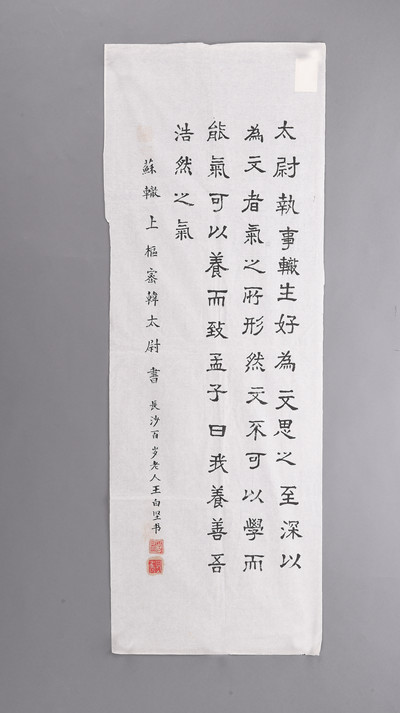 太尉執事轍生好為文思之至深以
為文者氣之所形然文不可以學而
能氣可以養而致孟子曰我養善吾
浩然之氣
蘇轍上樞密韓太尉書 長沙百岁老人王白坚书